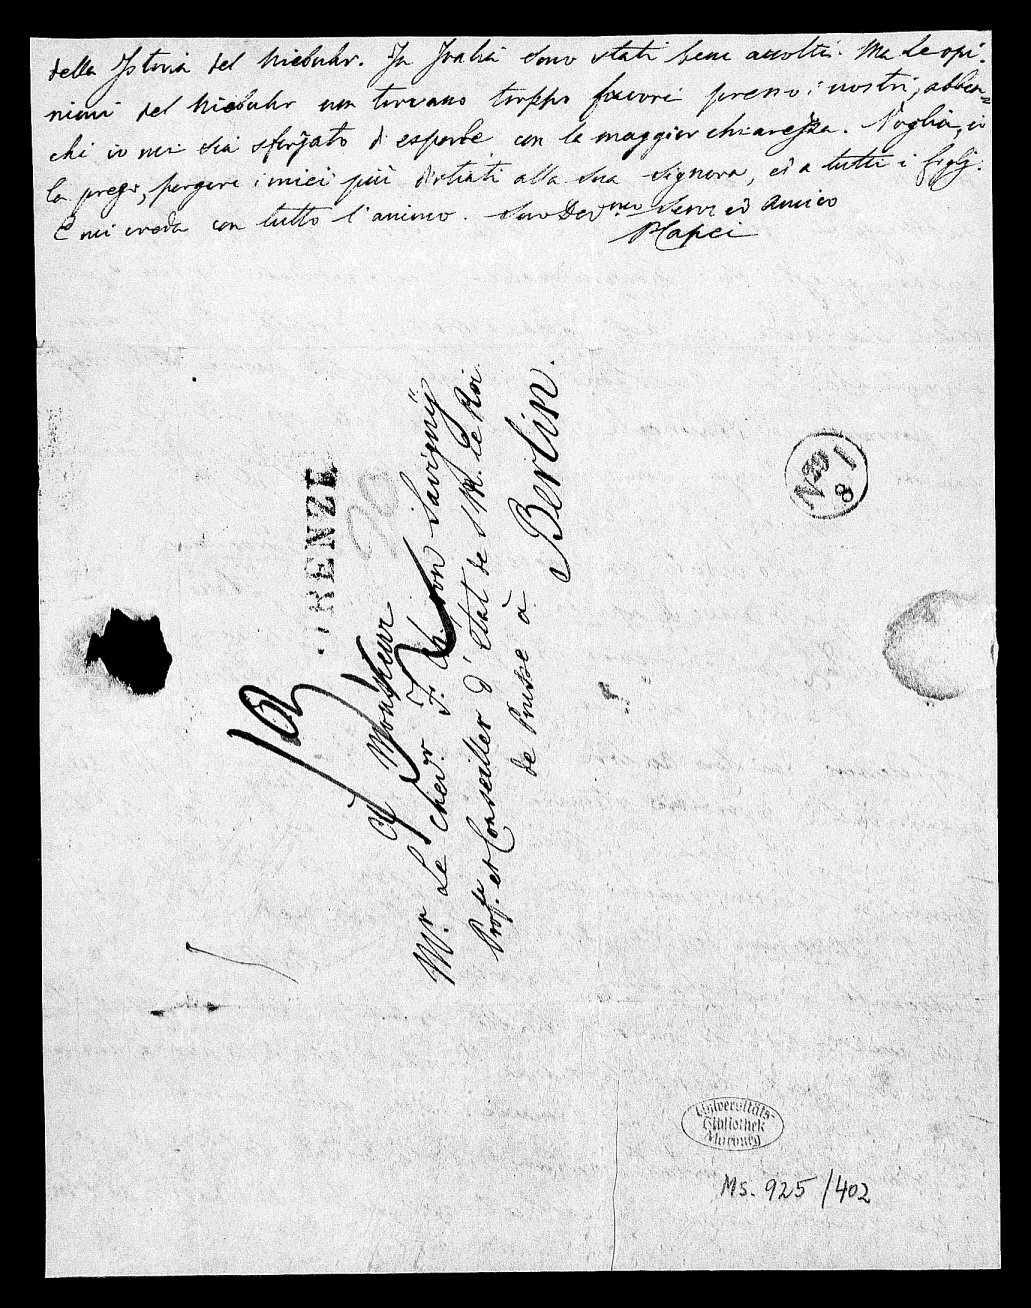 della Istoria del Niebuhr. In Italia sono stati bene accolti. Ma le opi-
nioni del Niebuhr non trovano troppo favore presso i nostri, abben-
chè io mi sia sforzato di esporle con la maggior chiarezza. Voglia, io
la prego, porgere i miei più distinti alla sua Signora, ed a tutti i figlj.
E mi creda con tutto l'animo. Suo Dev.mo Serv ed Amico
Capei
FIRENZE
A Monsieur
Mr. Le Chev.r F. Ch. von Savigny
Prof. et Conseiller d'état de S. M. Le Roi
de Prusse à Berlin.
N 1
8
Universitäts-
Bibliothek
Marburg
Ms. 925/402